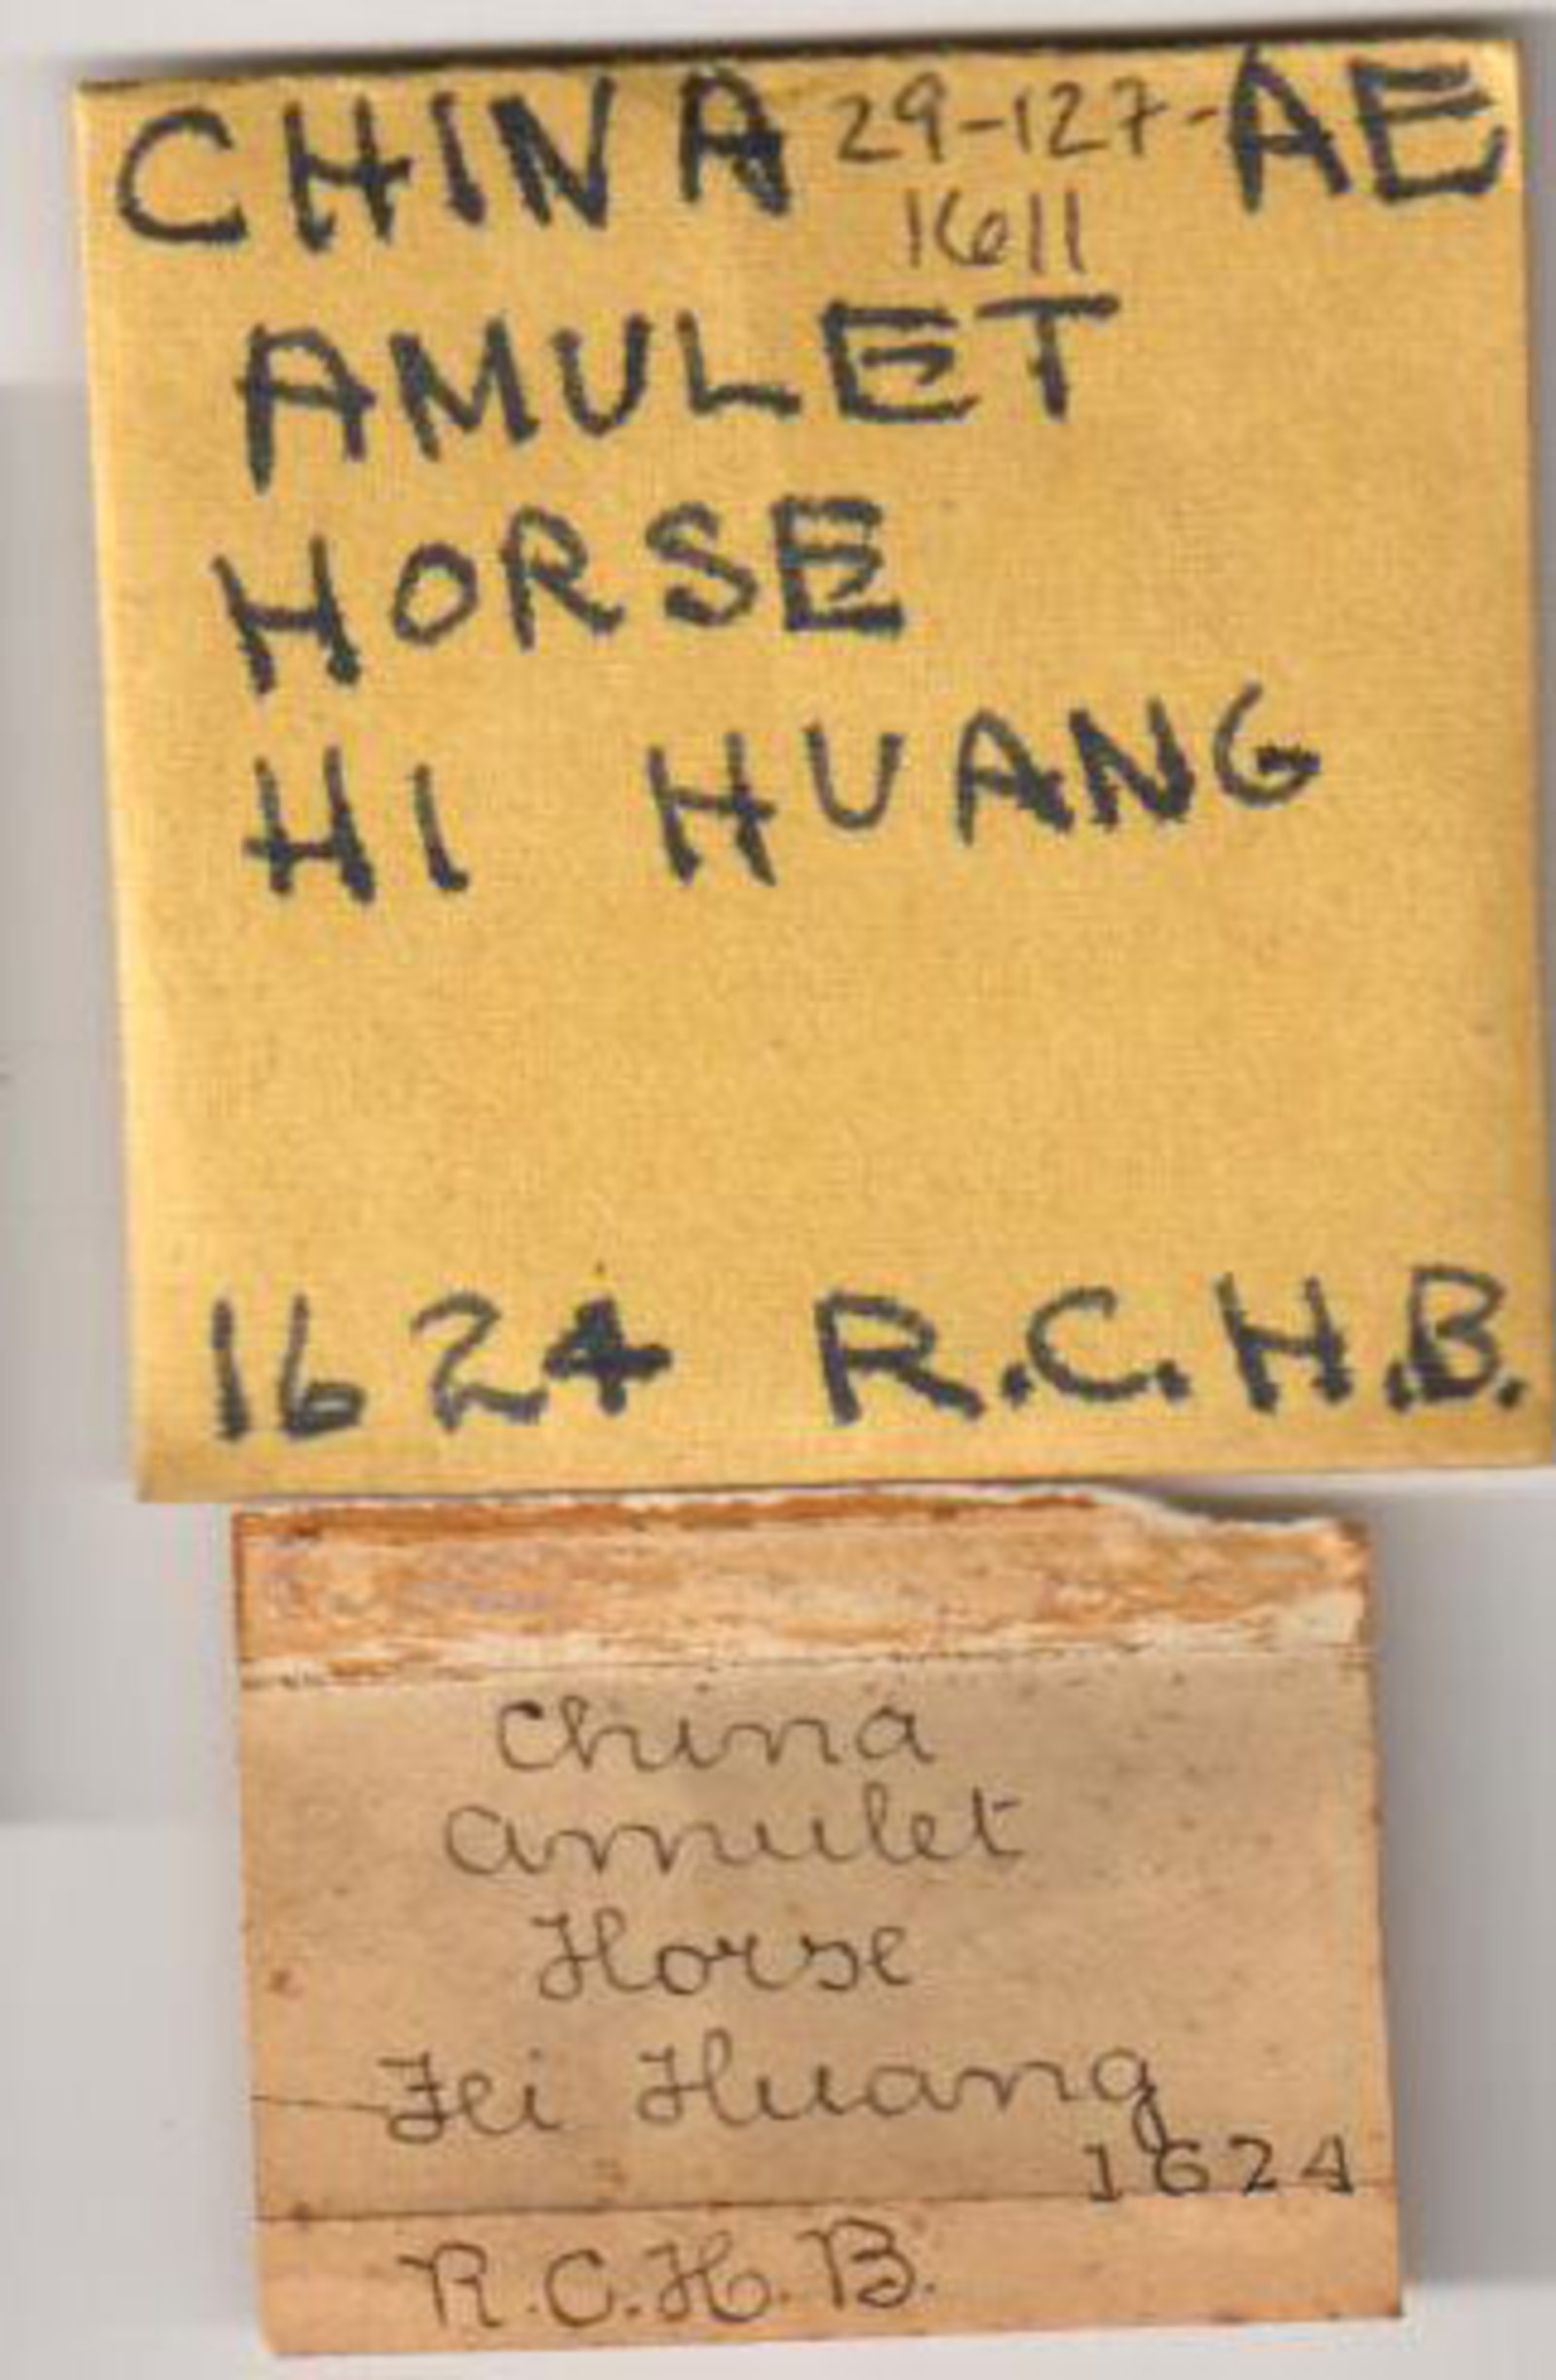 CHINA 29-127- AE
1611
AMULET
HORSE
HI HUANG
1624 R.C.H.B.
China
Amulet
Horse
Fei Huang
1624
R.C.H.B.